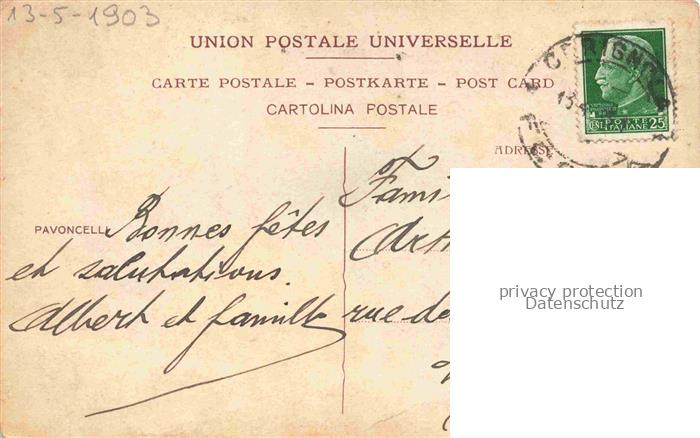 13-5-1903
UNION POSTALE UNIVERSELLE
CARTE POSTALE – POSTKARTE – POST CARD
CARTOLINA POSTALE
POSTE
ITALIANE
CENT. 25
ADRESSE
PAVONCELLI
Bonnes fêtes
et salutations.
Albert et famille
Fami
Arth
rue de
privacy protection
Datenschutz